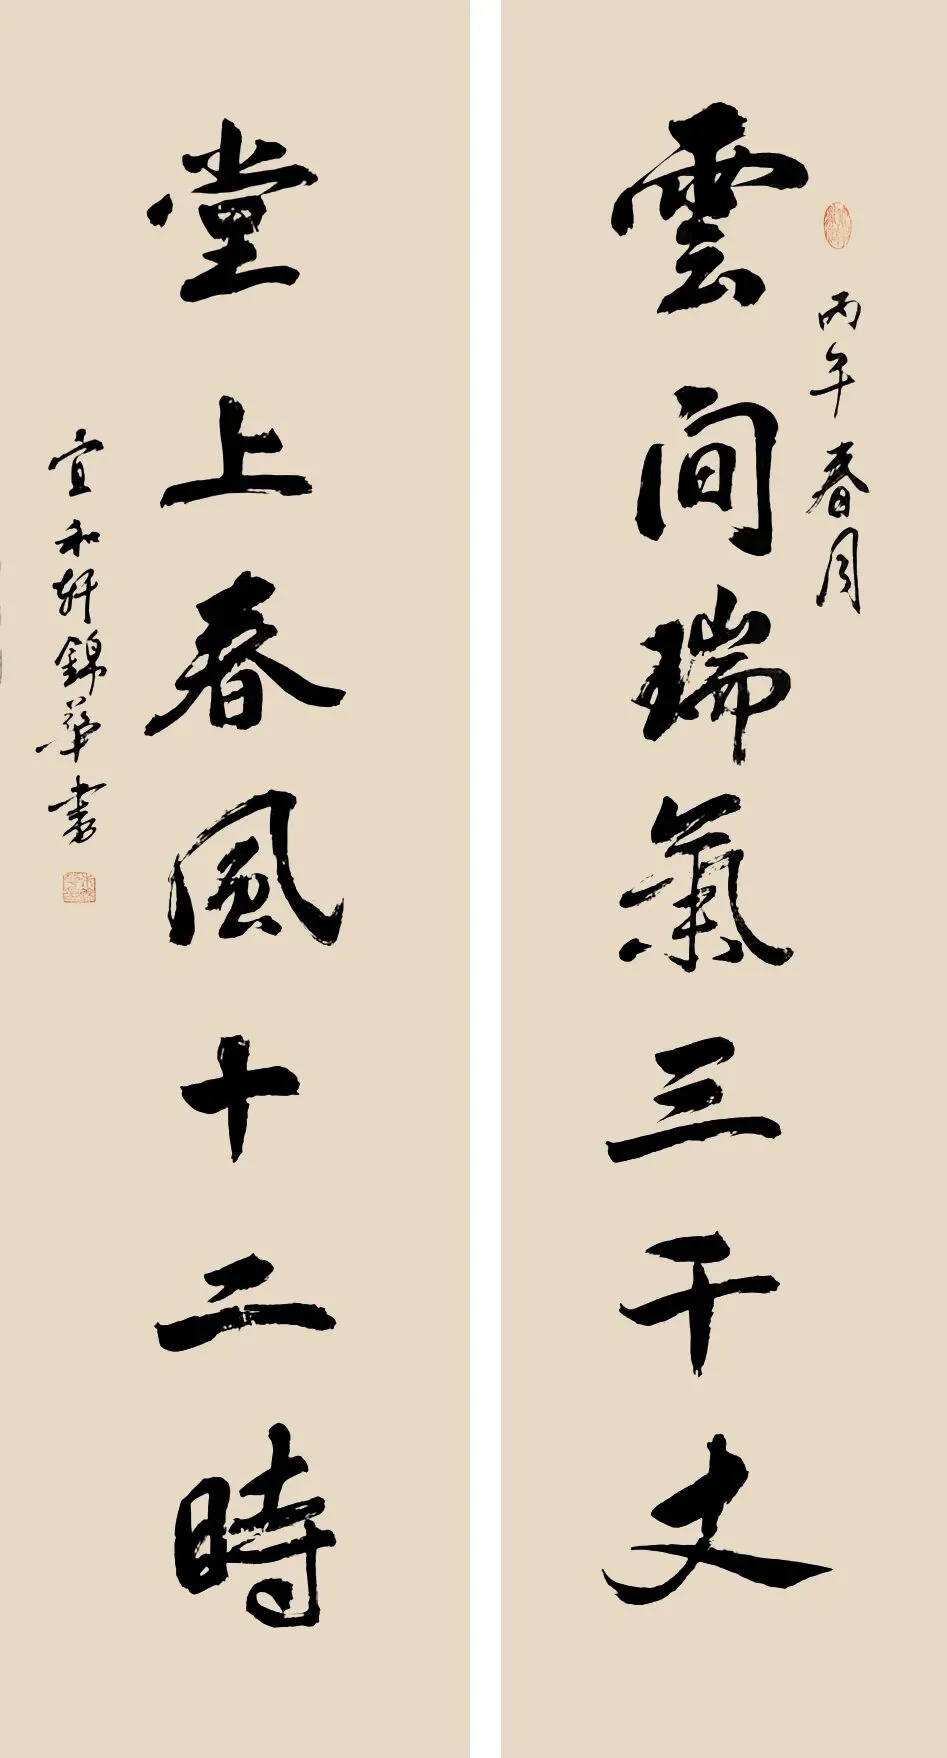 雲间瑞氣三千丈
丙午春月
堂上春風十二時
宣和轩錦華書